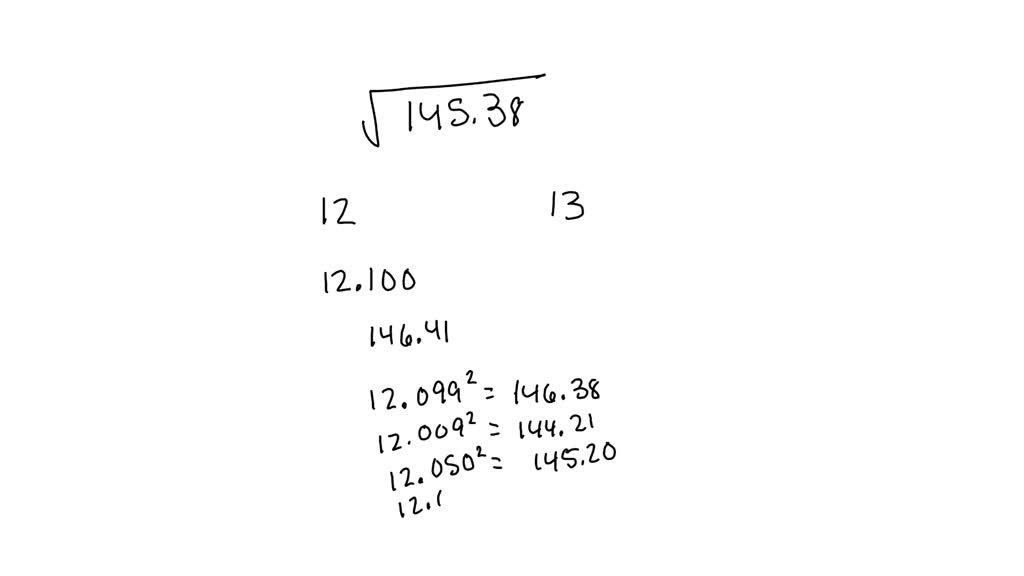 √145.38
12 13
12.100
146.41
12.099² = 146.38
12.009² = 144.21
12.050² = 145.20
12.0